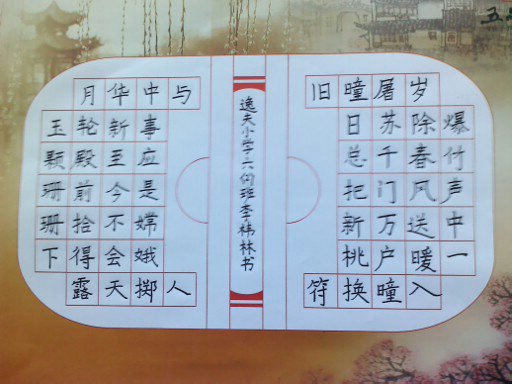 爆竹声中一
岁除春风送暖入
屠苏千门万户曈
曈日总把新桃换
旧符
玉颗珊珊下
月轮殿前拾得露
华新至今不会天
中事应是嫦娥掷
与人
逸夫小学六班李林书